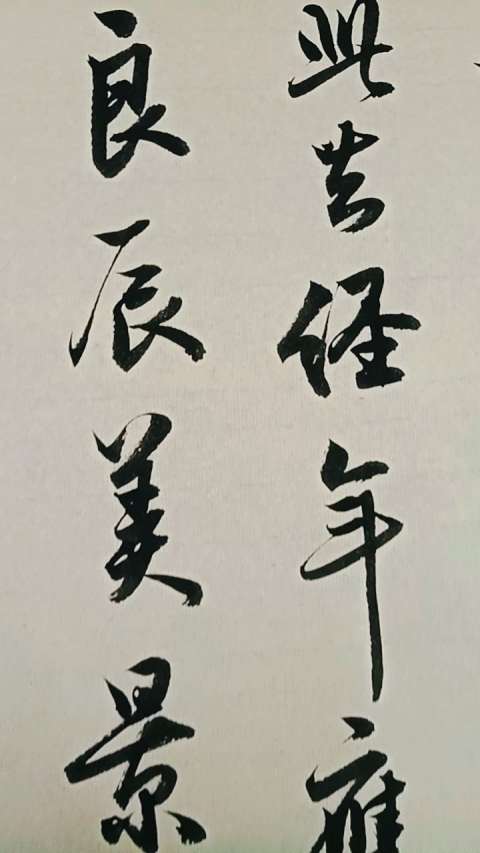 此去经年应
良辰美景